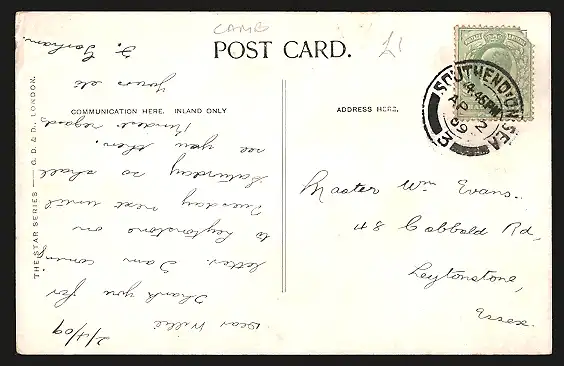 CAMB
POST CARD.
£1
COMMUNICATION HERE. INLAND ONLY
ADDRESS HERE.
THE STAR SERIES — G. D. & D., LONDON.
SOUTHEND-ON-SEA
4.45PM
AP 2
09
3
Master Wm Evans.
48 Cobbold Rd,
Leytonstone,
Essex.
2/4/09
Dear Willie
Thank you for
letter. I am coming
to Leytonstone on
Tuesday next until
Saturday so shall
see you then.
Kindest regards
Yours etc
F. Gorham.